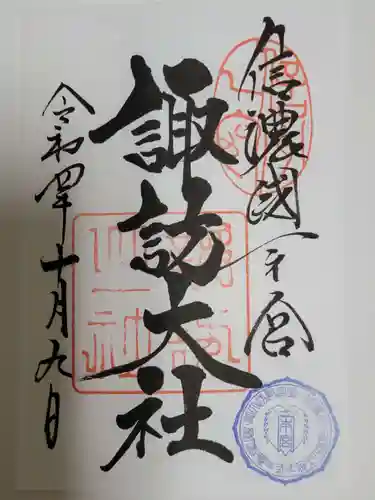 信濃國一之宮
諏訪大社
令和四年十月九日
本宮